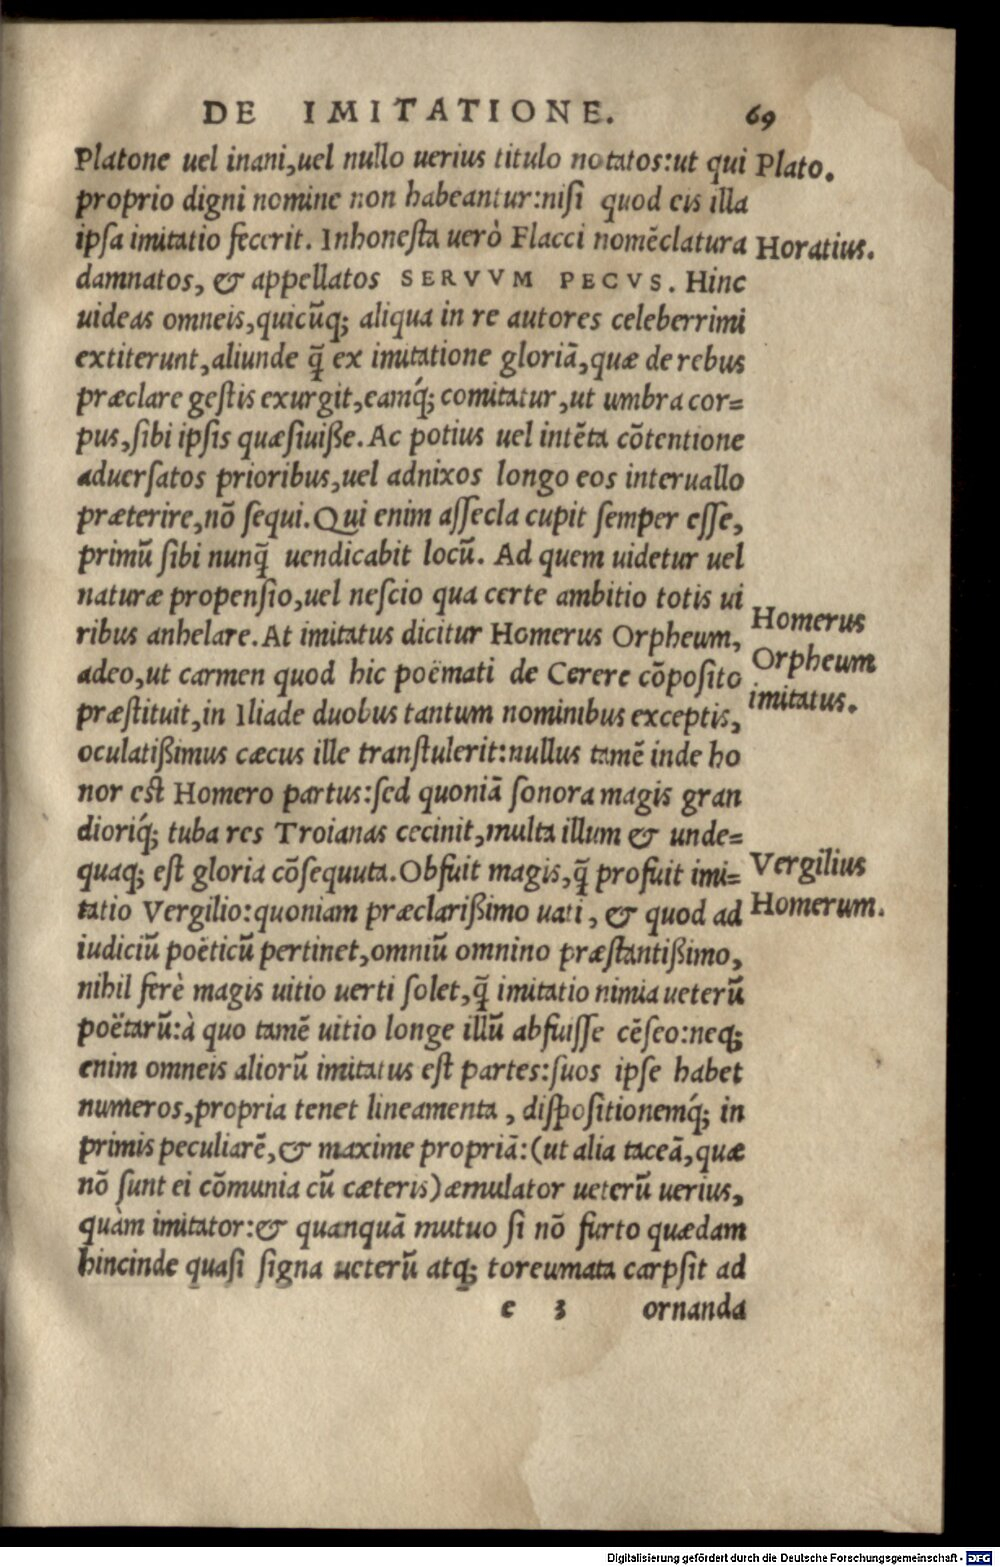 DE IMITATIONE. 69
Platone uel inani, uel nullo uerius titulo notatos: ut qui
Plato.
proprio digni nomine non habeantur: nisi quod eis illa
ipsa imitatio fecerit. Inhonesta uerò Flacci nomēclatura
Horatius.
damnatos, & appellatos SERVVM PECVS. Hinc
uideas omneis, quicūq; aliqua in re autores celeberrimi
extiterunt, aliunde q̄ ex imitatione gloriā, quæ de rebus
præclare gestis exurgit, eamq́; comitatur, ut umbra cor=
pus, sibi ipsis quæsiuiße. Ac potius uel intēta cōtentione
aduersatos prioribus, uel adnixos longo eos interuallo
præterire, nō sequi. Qui enim assecla cupit semper esse,
primū sibi nunq̄ uendicabit locū. Ad quem uidetur uel
naturæ propensio, uel nescio qua certe ambitio totis ui
ribus anhelare. At imitatus dicitur Homerus Orpheum,
Homerus
Orpheum
imitatus.
adeo, ut carmen quod hic poëmati de Cerere cōposito
præstituit, in Iliade duobus tantum nominibus exceptis,
oculatißimus cæcus ille transtulerit: nullus tamē inde ho
nor est Homero partus: sed quoniā sonora magis gran
dioriq́; tuba res Troianas cecinit, multa illum & unde=
quaq; est gloria cōsequuta. Obfuit magis, q̄ profuit imi=
Vergilius
Homerum.
tatio Vergilio: quoniam præclarißimo uati, & quod ad
iudiciū poëticū pertinet, omniū omnino præstantißimo,
nihil ferè magis uitio uerti solet, q̄ imitatio nimia ueterū
poëtarū: à quo tamē uitio longe illū abfuisse cēseo: neq;
enim omneis aliorū imitatus est partes: suos ipse habet
numeros, propria tenet lineamenta, dispositionemq́; in
primis peculiarē, & maxime propriā: (ut alia taceā, quæ
nō sunt ei cōmunia cū cæteris) æmulator ueterū uerius,
quàm imitator: & quanquā mutuo si nō furto quædam
hincinde quasi signa ueterū atq; toreumata carpsit ad
e 3 ornanda
Digitalisierung gefördert durch die Deutsche Forschungsgemeinschaft - DFG